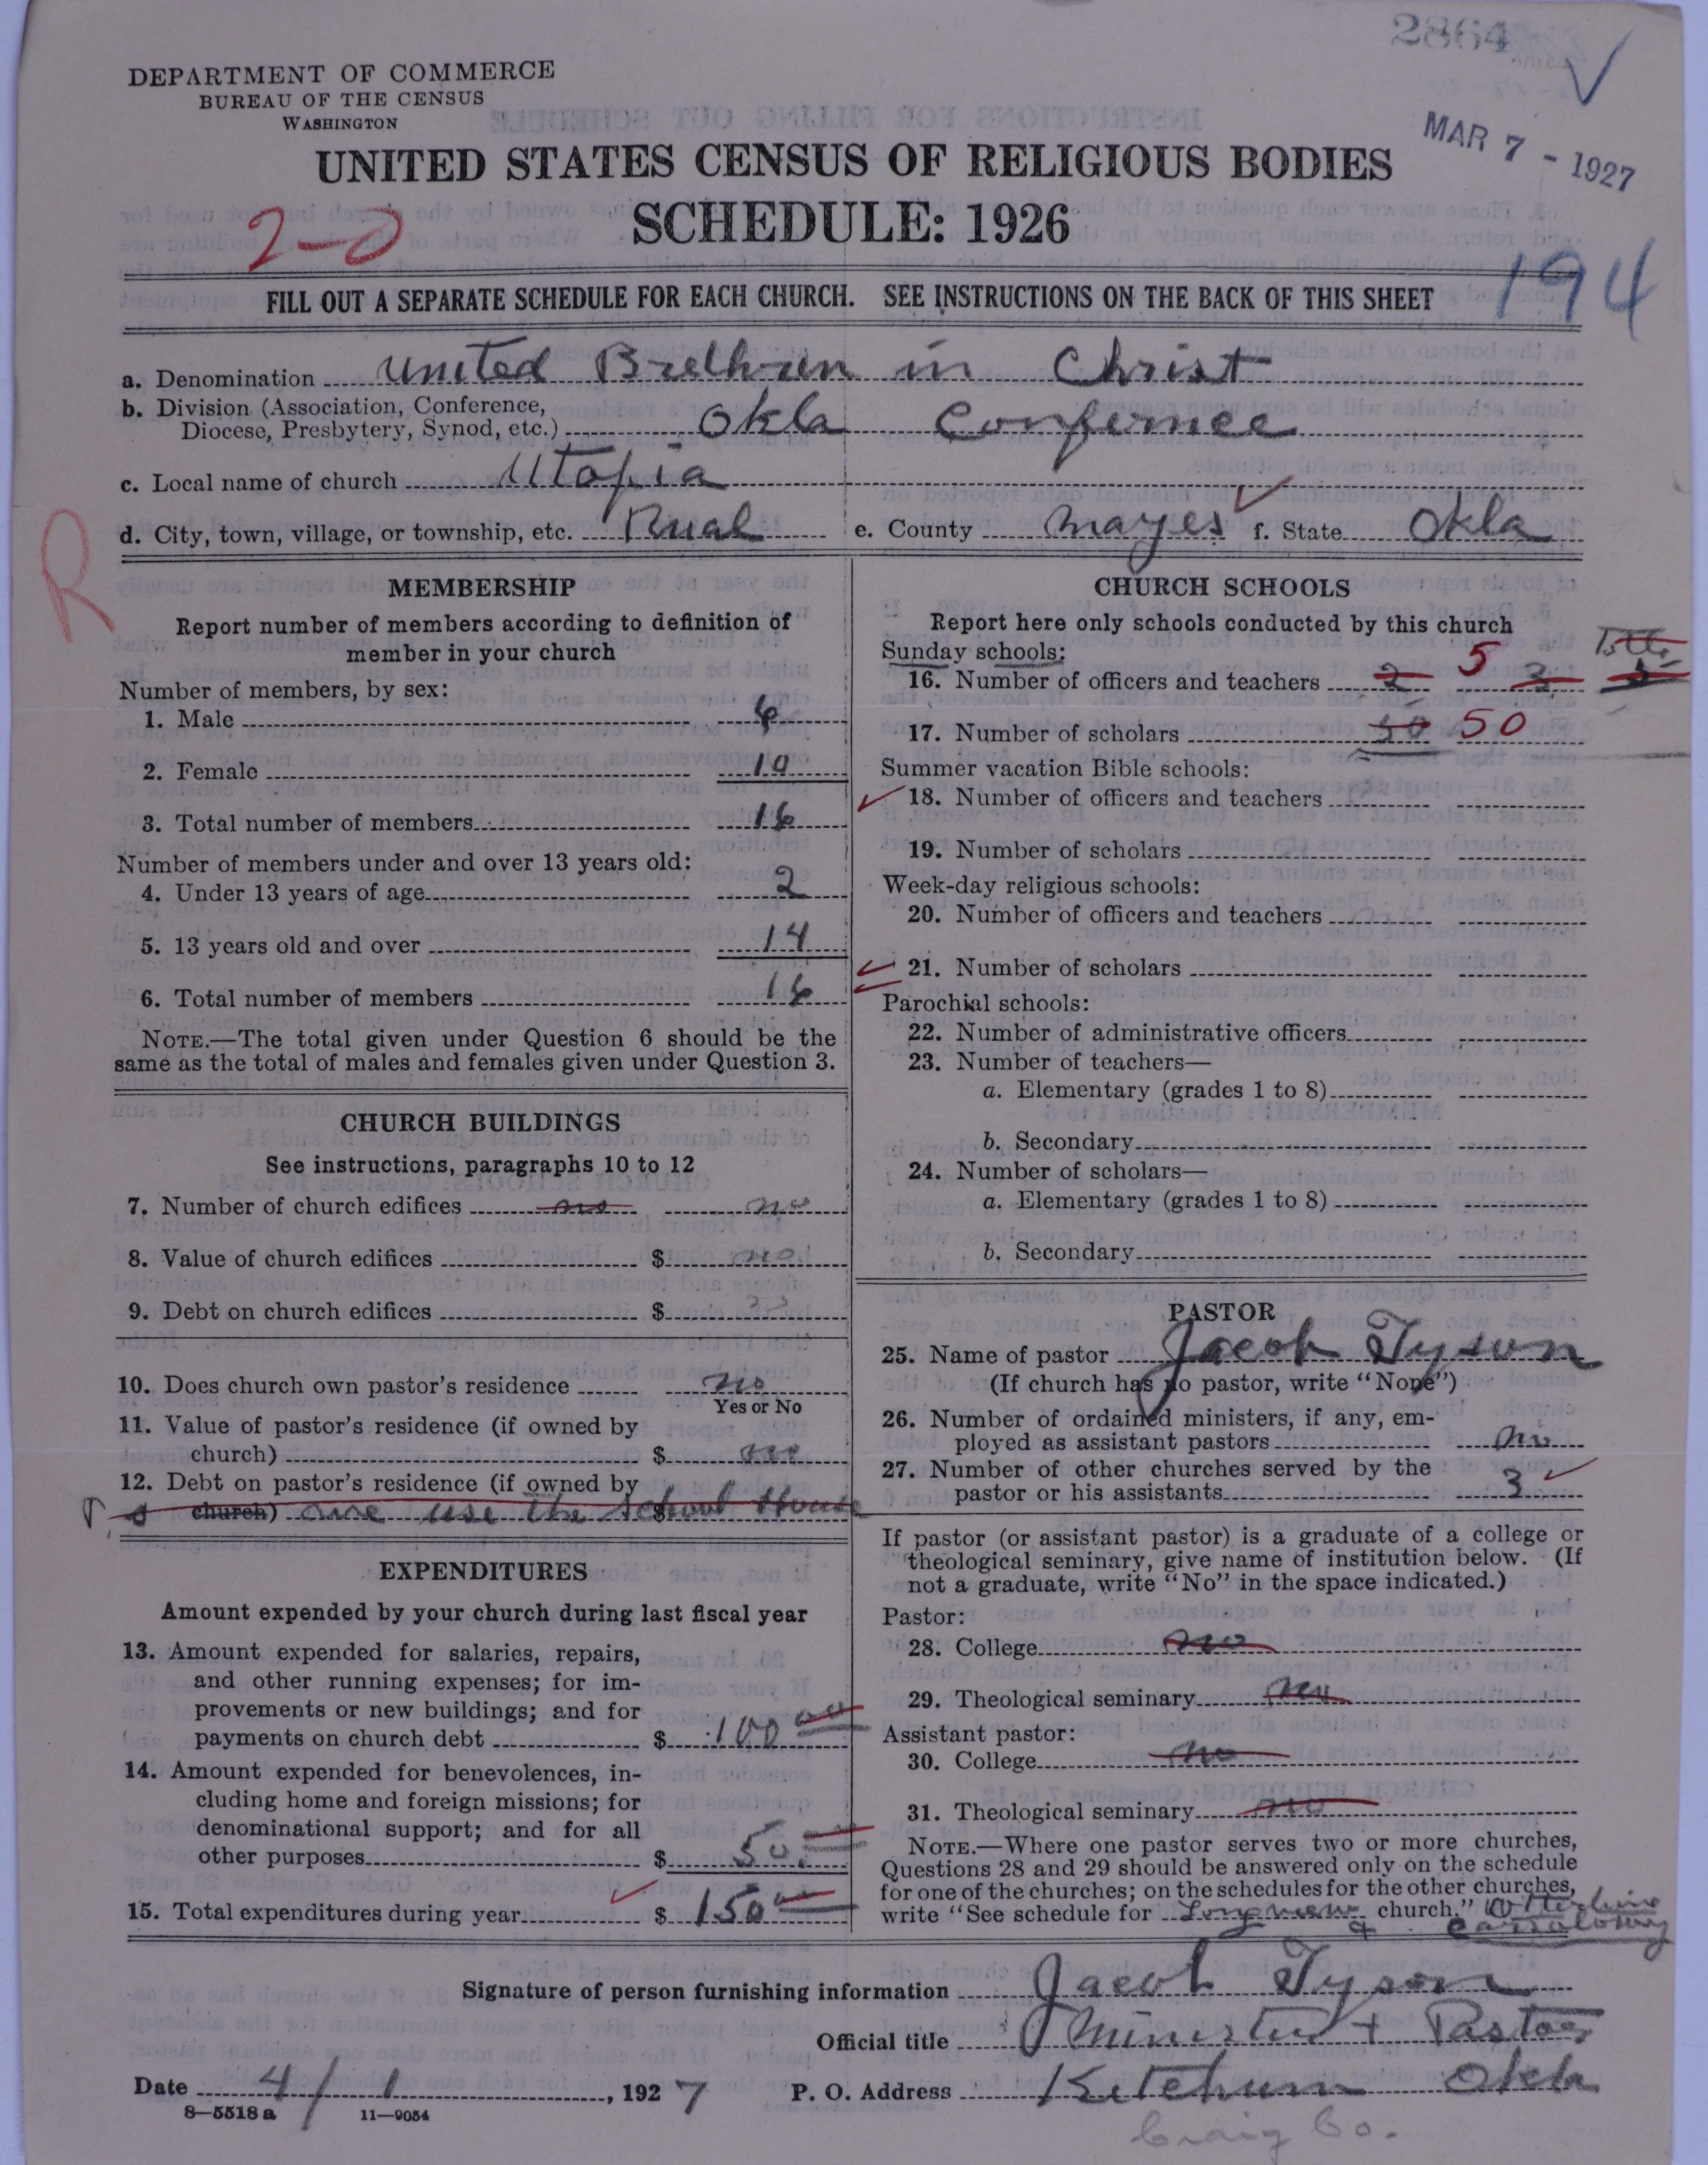 2864
DEPARTMENT OF COMMERCE
BUREAU OF THE CENSUS
WASHINGTON
MAR 7 - 1927
UNITED STATES CENSUS OF RELIGIOUS BODIES
SCHEDULE: 1926
2-0
194
FILL OUT A SEPARATE SCHEDULE FOR EACH CHURCH. SEE INSTRUCTIONS ON THE BACK OF THIS SHEET
a. Denomination United Brethren in Christ
b. Division (Association, Conference,
Diocese, Presbytery, Synod, etc.) Okla Confernce
c. Local name of church Utopia
d. City, town, village, or township, etc. Rual e. County Mayes f. State Okla
R
MEMBERSHIP
Report number of members according to definition of
member in your church
Number of members, by sex:
1. Male 6
2. Female 10
3. Total number of members 16
Number of members under and over 13 years old:
4. Under 13 years of age 2
5. 13 years old and over 14
6. Total number of members 16
NOTE.—The total given under Question 6 should be the
same as the total of males and females given under Question 3.
CHURCH BUILDINGS
See instructions, paragraphs 10 to 12
7. Number of church edifices no no
8. Value of church edifices $ no
9. Debt on church edifices $
10. Does church own pastor's residence no
Yes or No
11. Value of pastor's residence (if owned by
church) $ no
12. Debt on pastor's residence (if owned by
church) $ use the school House
EXPENDITURES
Amount expended by your church during last fiscal year
13. Amount expended for salaries, repairs,
and other running expenses; for im-
provements or new buildings; and for
payments on church debt $ 100 00
14. Amount expended for benevolences, in-
cluding home and foreign missions; for
denominational support; and for all
other purposes $ 50
15. Total expenditures during year $ 150 00
CHURCH SCHOOLS
Report here only schools conducted by this church
Sunday schools:
16. Number of officers and teachers 2 5 3
17. Number of scholars 50 50
Summer vacation Bible schools:
18. Number of officers and teachers
19. Number of scholars
Week-day religious schools:
20. Number of officers and teachers
21. Number of scholars
Parochial schools:
22. Number of administrative officers
23. Number of teachers—
a. Elementary (grades 1 to 8)
b. Secondary
24. Number of scholars—
a. Elementary (grades 1 to 8)
b. Secondary
PASTOR
25. Name of pastor Jacob Tyson
(If church has no pastor, write "None")
26. Number of ordained ministers, if any, em-
ployed as assistant pastors no
27. Number of other churches served by the
pastor or his assistants 3
If pastor (or assistant pastor) is a graduate of a college or
theological seminary, give name of institution below. (If
not a graduate, write "No" in the space indicated.)
Pastor:
28. College no
29. Theological seminary no
Assistant pastor:
30. College no
31. Theological seminary no
NOTE.—Where one pastor serves two or more churches,
Questions 28 and 29 should be answered only on the schedule
for one of the churches; on the schedules for the other churches,
write "See schedule for Longview church."
Signature of person furnishing information Jacob Tyson
Official title Minister + Pastor
Date 4/1, 1927 P. O. Address Ketchum Okla
8—5518 a 11—9054
Craig Co.